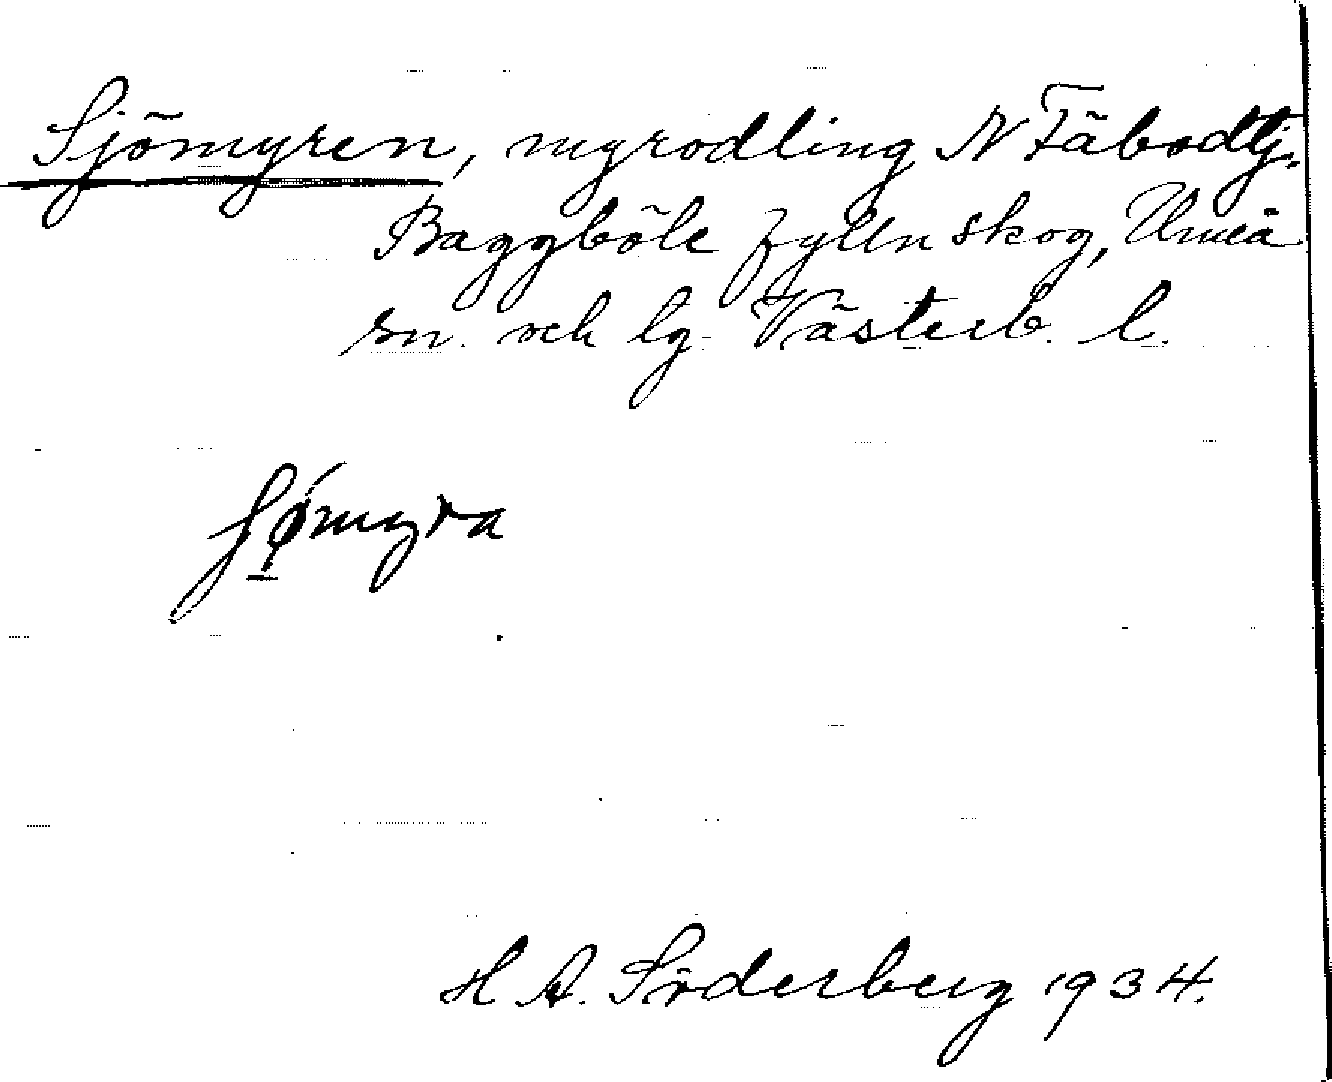 Sjömyren, myrodling N Fäbodtj.
Baggböle fylln skog, Umeå
sn. och lg. Västerb. l.
H. A. Söderberg 1934.